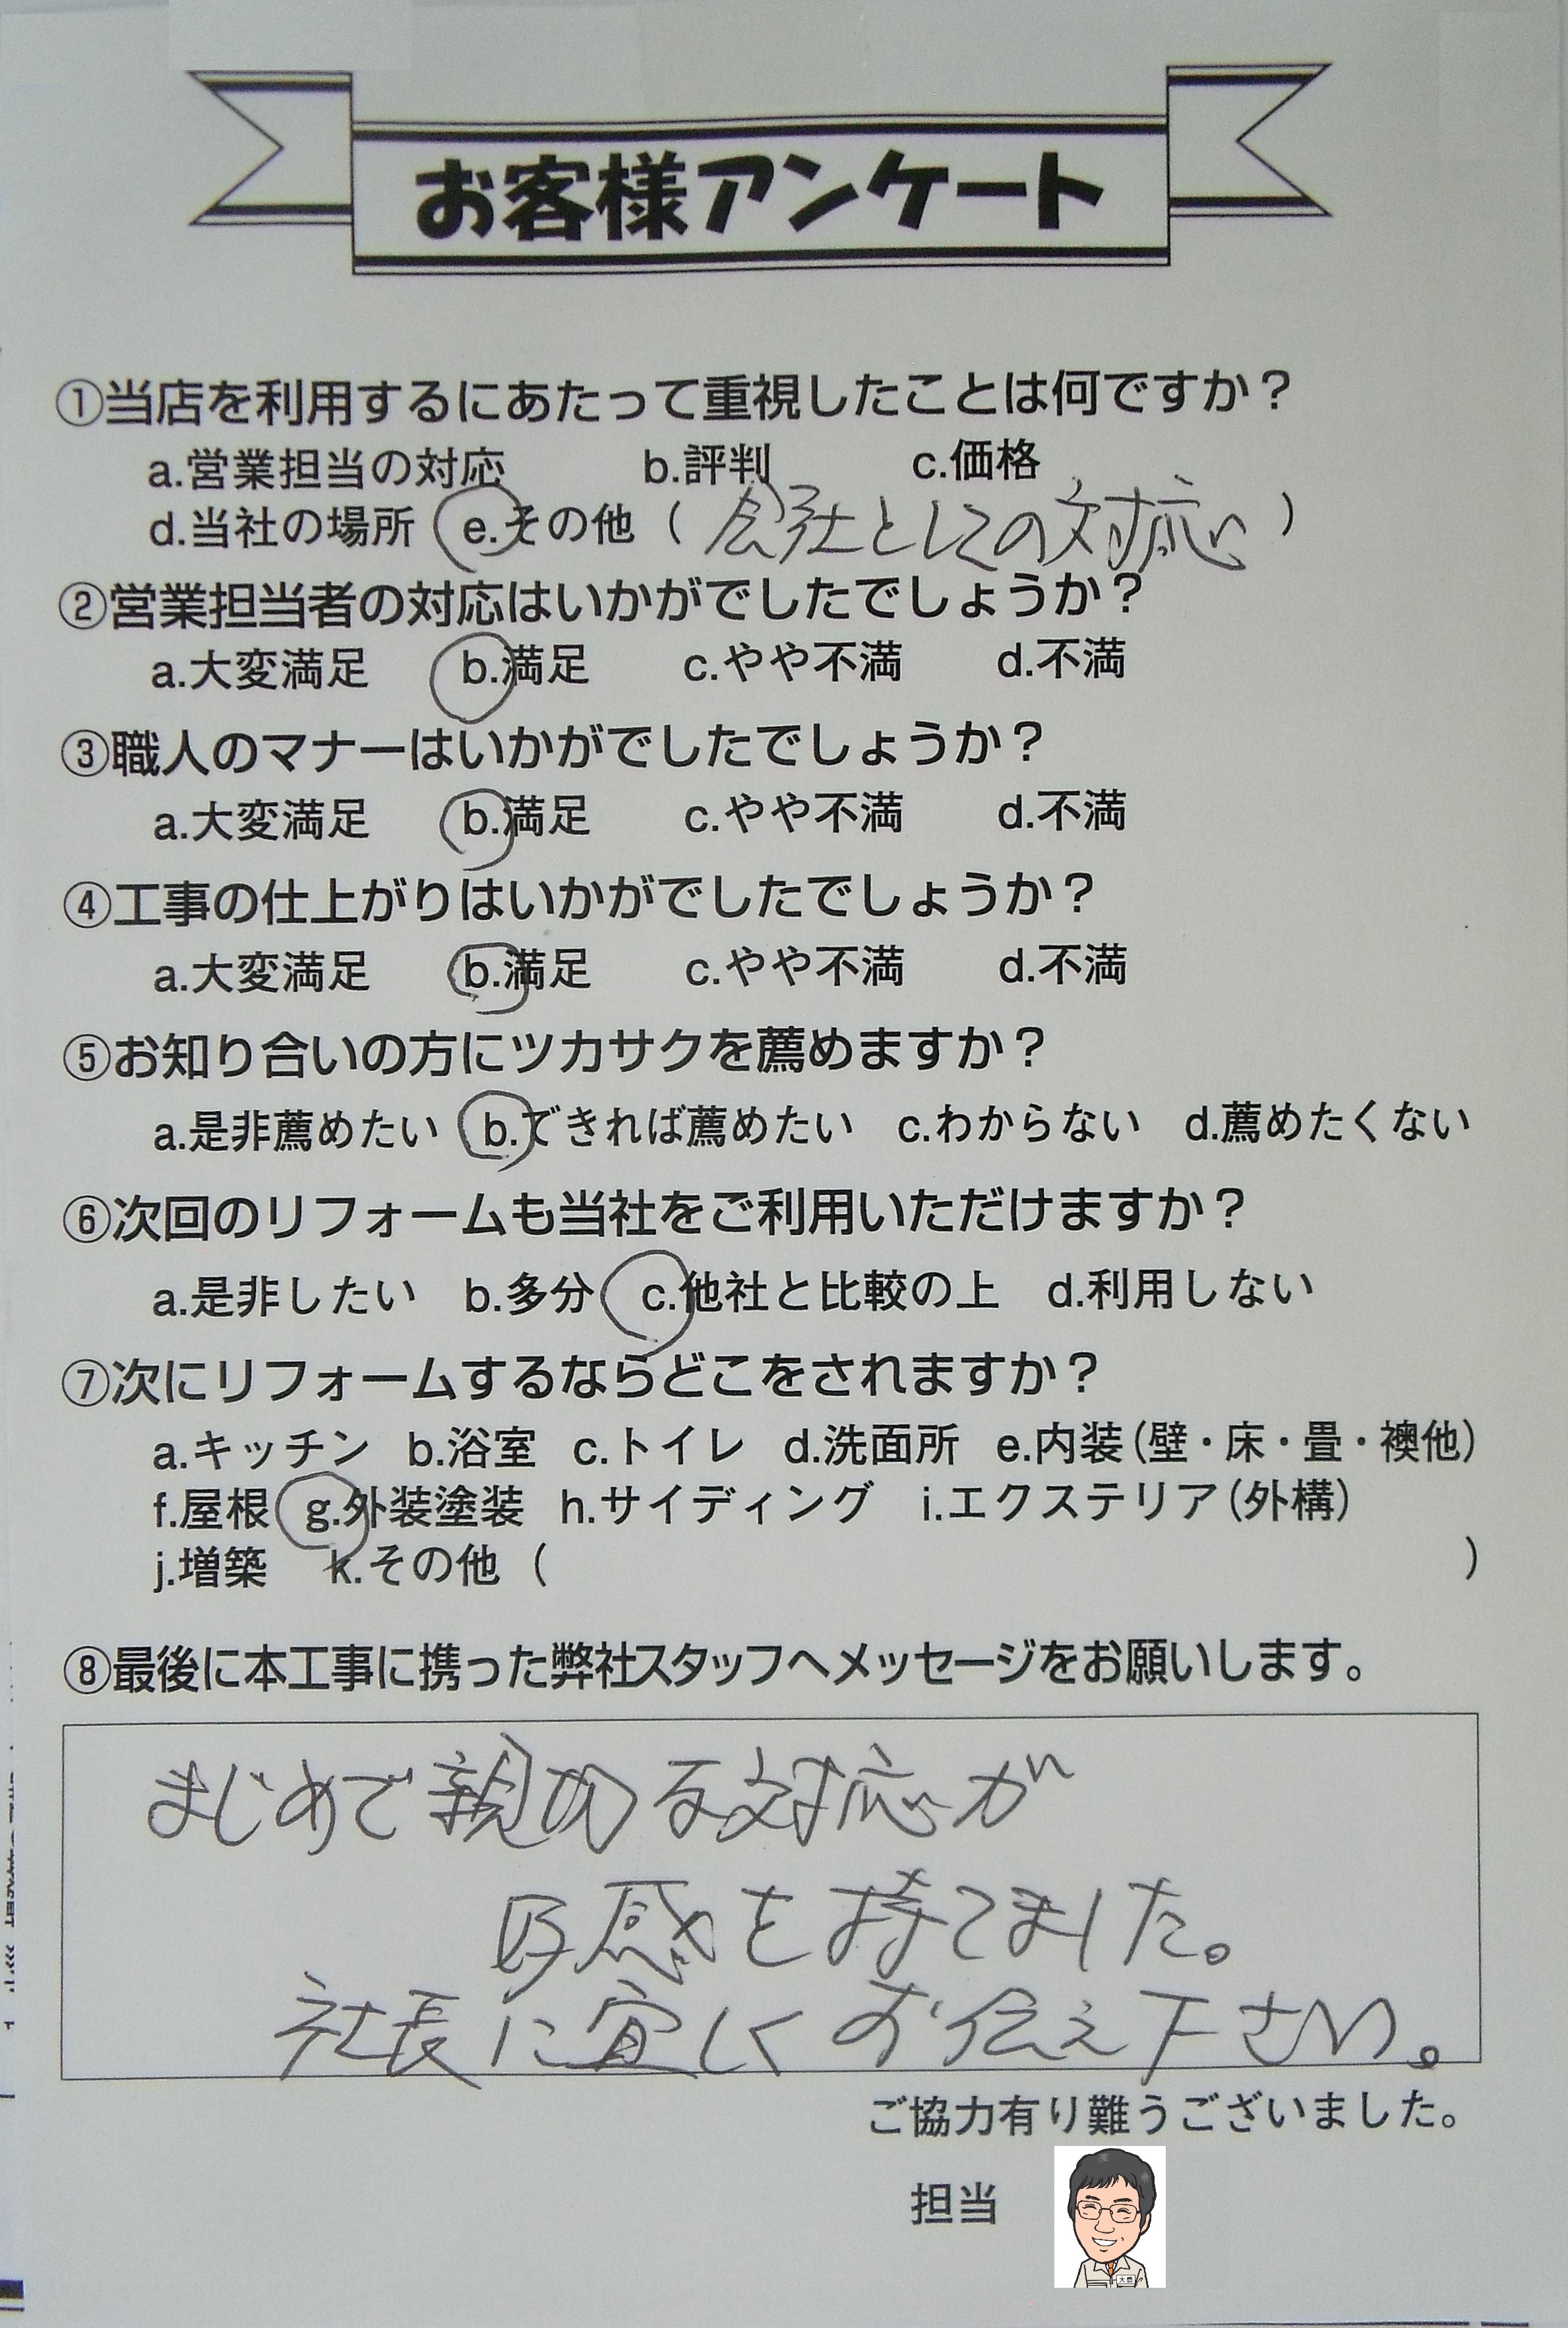 お客様アンケート
①当店を利用するにあたって重視したことは何ですか？
a.営業担当の対応 b.評判 c.価格
d.当社の場所 e.その他（会社としての対応）
②営業担当者の対応はいかがでしたでしょうか？
a.大変満足 b.満足 c.やや不満 d.不満
③職人のマナーはいかがでしたでしょうか？
a.大変満足 b.満足 c.やや不満 d.不満
④工事の仕上がりはいかがでしたでしょうか？
a.大変満足 b.満足 c.やや不満 d.不満
⑤お知り合いの方にツカサクを薦めますか？
a.是非薦めたい b.できれば薦めたい c.わからない d.薦めたくない
⑥次回のリフォームも当社をご利用いただけますか？
a.是非したい b.多分 c.他社と比較の上 d.利用しない
⑦次にリフォームするならどこをされますか？
a.キッチン b.浴室 c.トイレ d.洗面所 e.内装（壁・床・畳・襖他）
f.屋根 g.外装塗装 h.サイディング i.エクステリア（外構）
j.増築 k.その他（ ）
⑧最後に本工事に携った弊社スタッフへメッセージをお願いします。
まじめで親切な対応が
好感を持てました。
社長に宜しくお伝え下さい。
ご協力有り難うございました。
担当